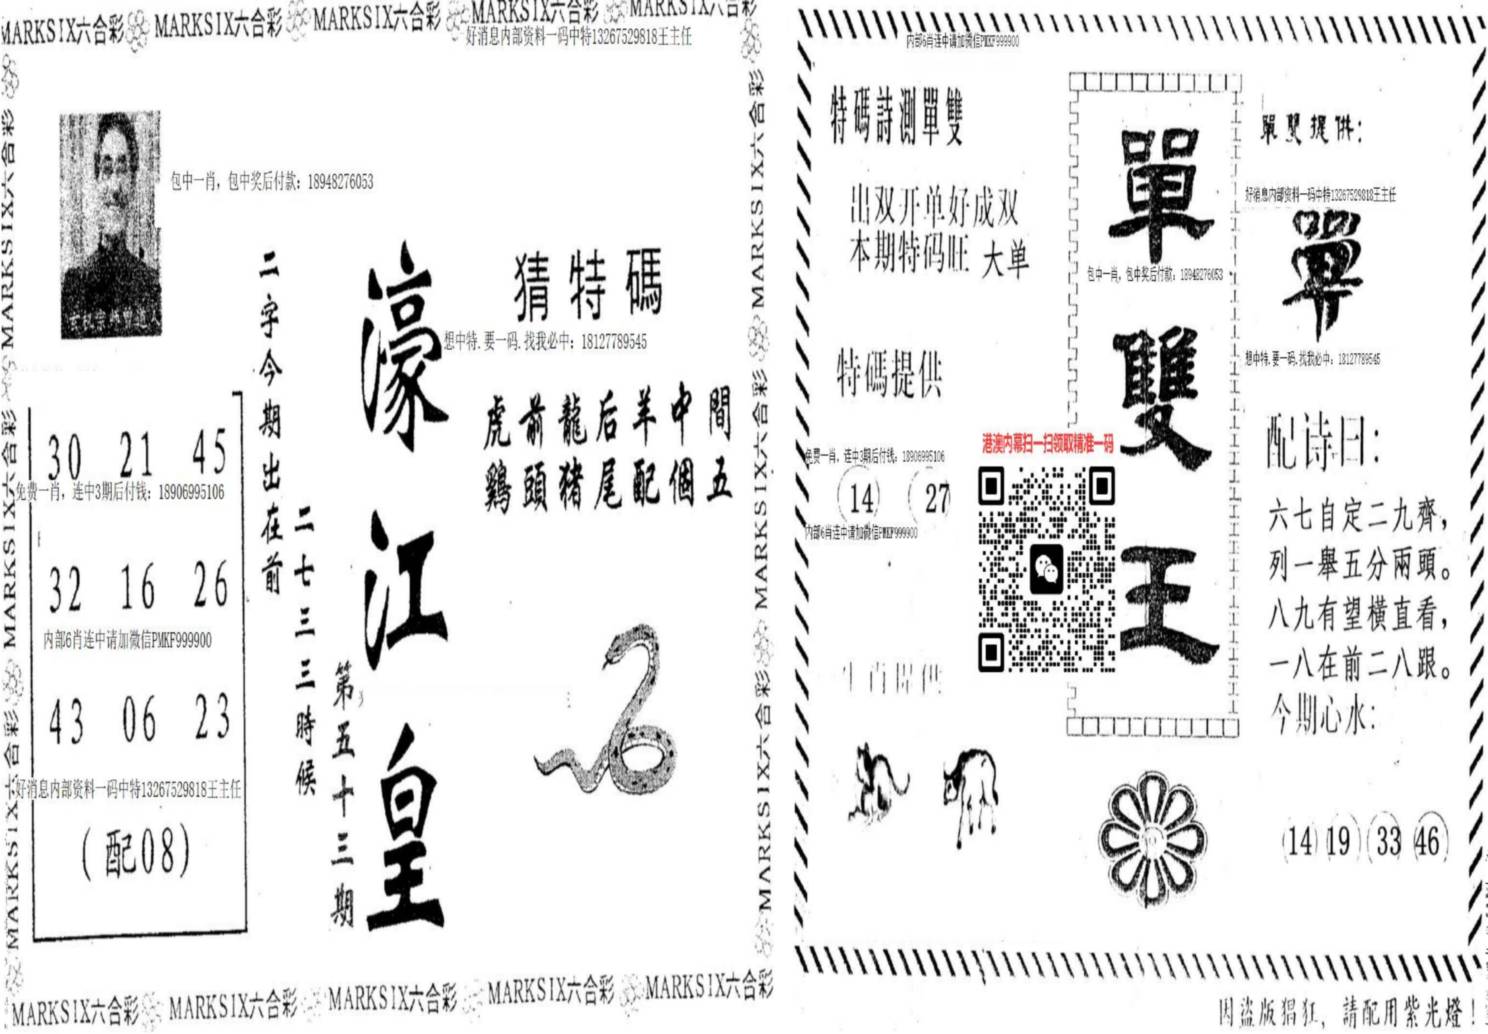 MARKSIX六合彩 MARKSIX六合彩 MARKSIX六合彩 MARKSIX六合彩 MARKSIX六合彩
好消息内部资料一码中特13267529818王主任
包中一肖，包中奖后付款：18948276053
30 21 45
免费一肖，连中3期后付钱：18906995106
32 16 26
内部6肖连中请加微信PMKF999900
43 06 23
好消息内部资料一码中特13267529818王主任
(配08)
二字今期出在前
二七三三時候
第五十三期
濠江皇
猜特碼
想中特.要一码.找我必中：18127789545
虎前龍后羊中間
鷄頭猪尾配個五
MARKSIX六合彩 MARKSIX六合彩 MARKSIX六合彩 MARKSIX六合彩 MARKSIX六合彩
MARKSIX六合彩 MARKSIX六合彩 MARKSIX六合彩
MARKSIX六合彩 MARKSIX六合彩 MARKSIX六合彩
内部6肖连中请加微信PMKF999900
特碼詩測單雙
出双开单好成双
本期特码旺大单
特碼提供
免费一肖，连中3期后付钱：18906995106
14 27
内部6肖连中请加微信PMKF999900
生肖提供
單雙王
包中一肖，包中奖后付款：18948276053
港澳内幕扫一扫领取精准一码
單雙提供：
好消息内部资料一码中特13267529818王主任
單
想中特.要一码.找我必中：18127789545
配诗曰：
六七自定二九齊，
列一舉五分兩頭。
八九有望橫直看，
一八在前二八跟。
今期心水：
14 19 33 46
因盜版猖狂，請配用紫光燈！